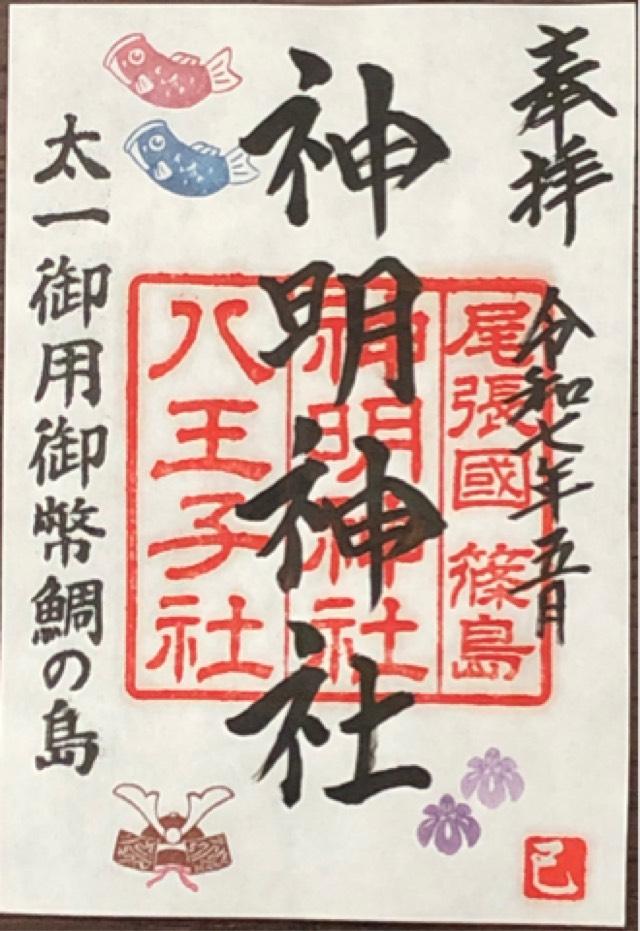 奉拝
令和七年五月
神明神社
太一御用御幣鯛の島
尾張國 篠島
神明神社
八王子社
巳